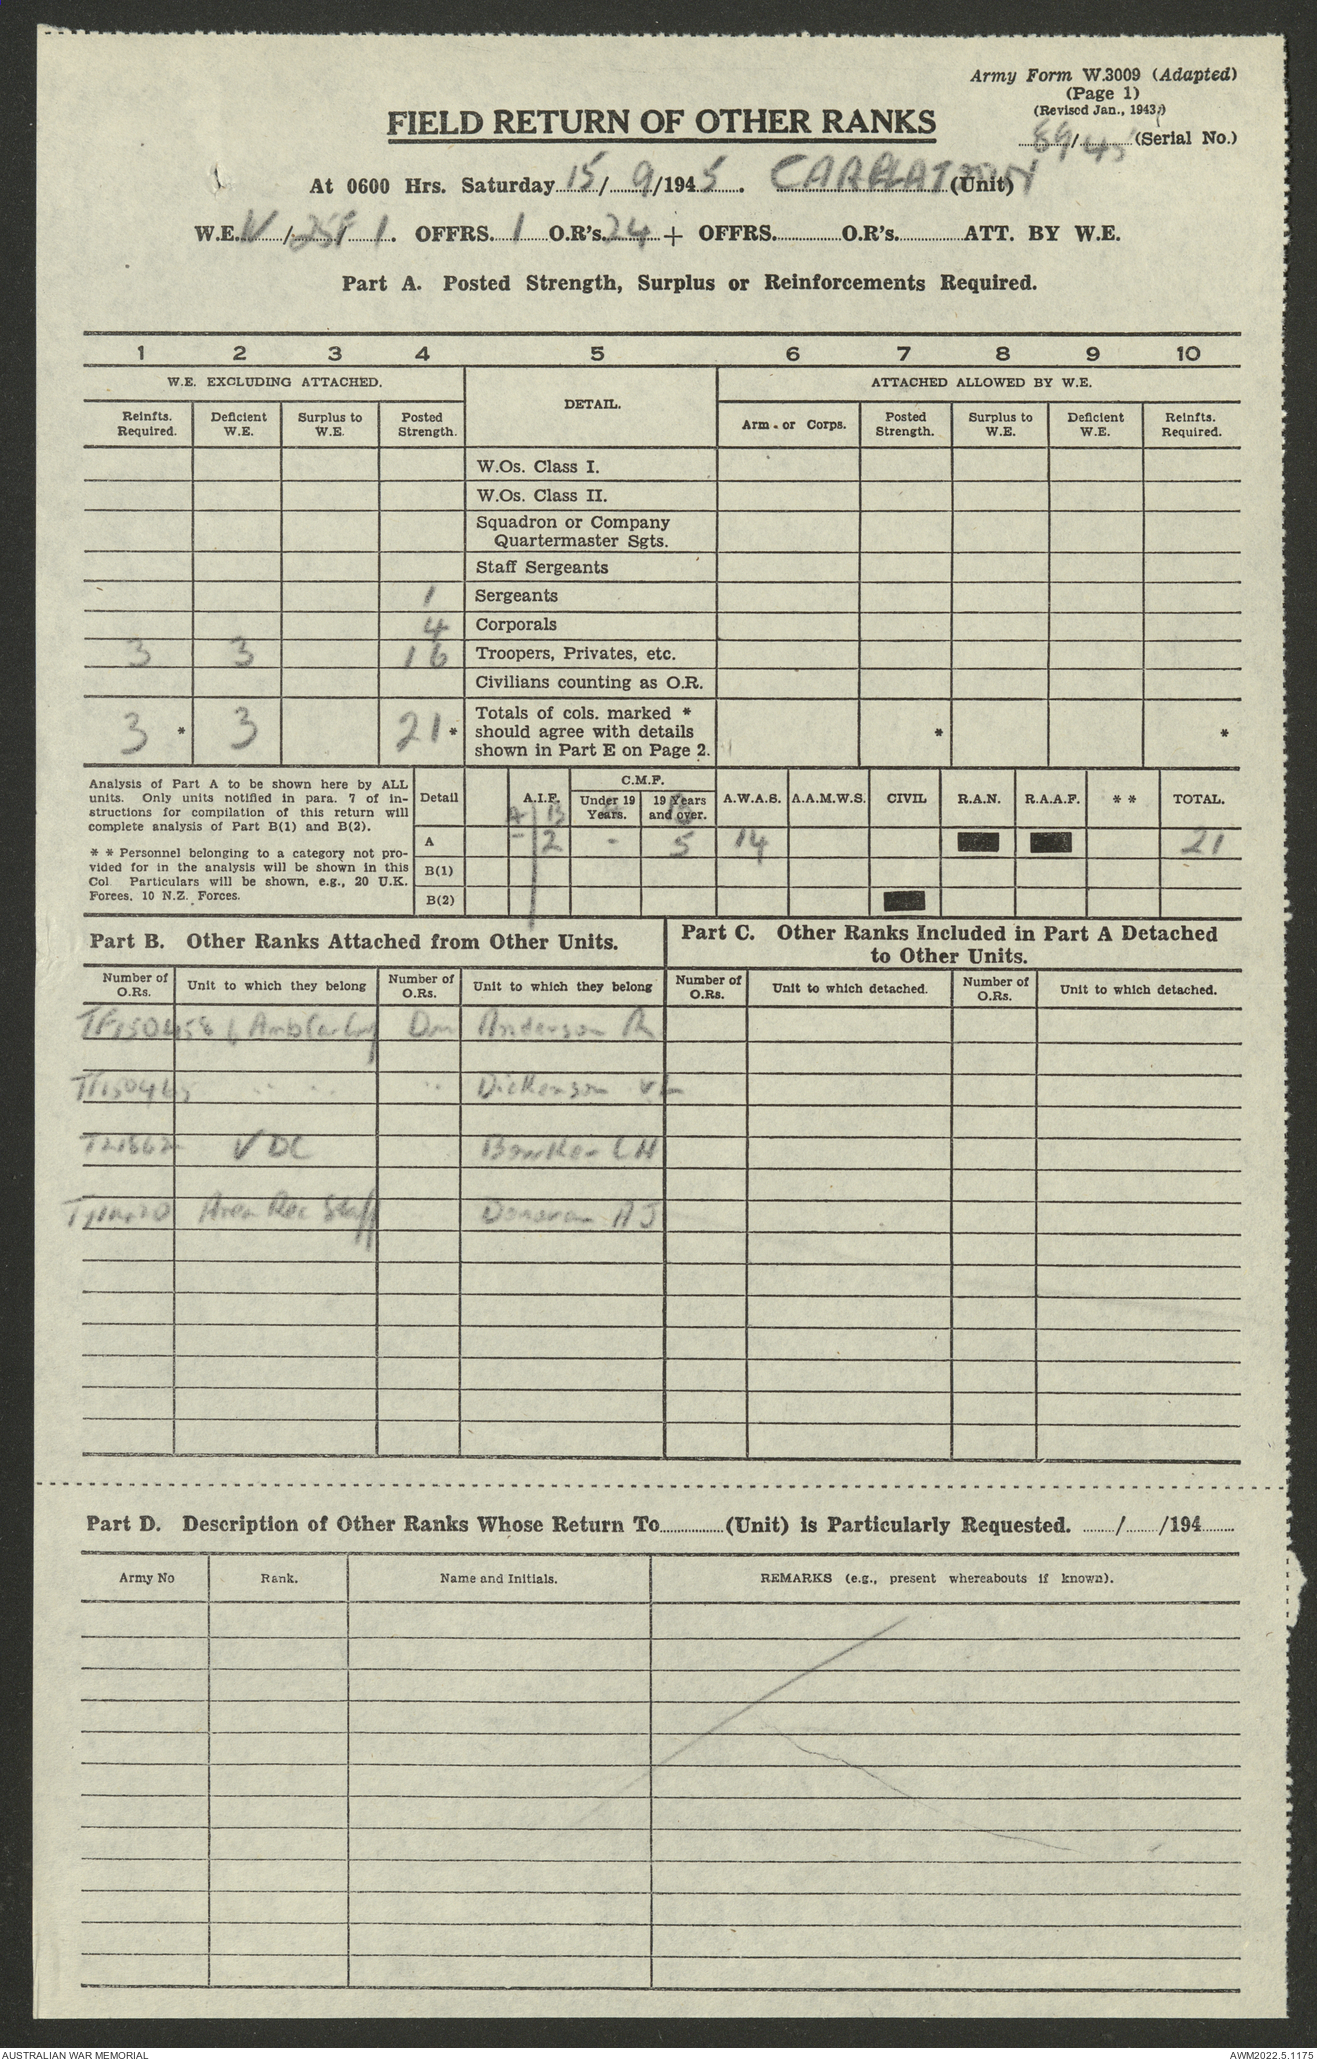 Army Form W.3009 (Adapted)
(Page 1)
(Revised Jan., 1943.)
89/45 (Serial No.)
FIELD RETURN OF OTHER RANKS
At 0600 Hrs. Saturday 15/9/1945. (Unit)
W.E. V/25F/1. OFFRS. 1 O.R's. 24 + OFFRS. O.R's. ATT. BY W.E.
Part A. Posted Strength, Surplus or Reinforcements Required.
1 2 3 4 5 6 7 8 9 10
W.E. EXCLUDING ATTACHED. DETAIL. ATTACHED ALLOWED BY W.E.
Reinfts. Required. Deficient W.E. Surplus to W.E. Posted Strength. Arm. or Corps. Posted Strength. Surplus to W.E. Deficient W.E. Reinfts. Required.
W.Os. Class I.
W.Os. Class II.
Squadron or Company
Quartermaster Sgts.
Staff Sergeants
1 Sergeants
4 Corporals
3 3 16 Troopers, Privates, etc.
Civilians counting as O.R.
3 * 3 21 * Totals of cols. marked * * *
should agree with details
shown in Part E on Page 2.
Analysis of Part A to be shown here by ALL
units. Only units notified in para. 7 of in-
structions for compilation of this return will
complete analysis of Part B(1) and B(2).
* * Personnel belonging to a category not pro-
vided for in the analysis will be shown in this
Col Particulars will be shown, e.g., 20 U.K.
Forces, 10 N.Z. Forces.
Detail A.I.F. C.M.F. Under 19 Years. 19 Years and over. A.W.A.S. A.A.M.W.S. CIVIL R.A.N. R.A.A.F. * * TOTAL.
A B A B
A - 2 - 5 14 21
B(1)
B(2)
Part B. Other Ranks Attached from Other Units.
Part C. Other Ranks Included in Part A Detached
to Other Units.
Number of O.Rs. Unit to which they belong Number of O.Rs. Unit to which they belong Number of O.Rs. Unit to which detached. Number of O.Rs. Unit to which detached.
TF150458 6 Amb Car Coy Dvr Anderson R
TF150465 " " " Dickenson VL
VDC
Area Rec Staff Donovan A J
Part D. Description of Other Ranks Whose Return To (Unit) is Particularly Requested. / /194
Army No Rank. Name and Initials. REMARKS (e.g., present whereabouts if known).
AUSTRALIAN WAR MEMORIAL
AWM2022.5.1175